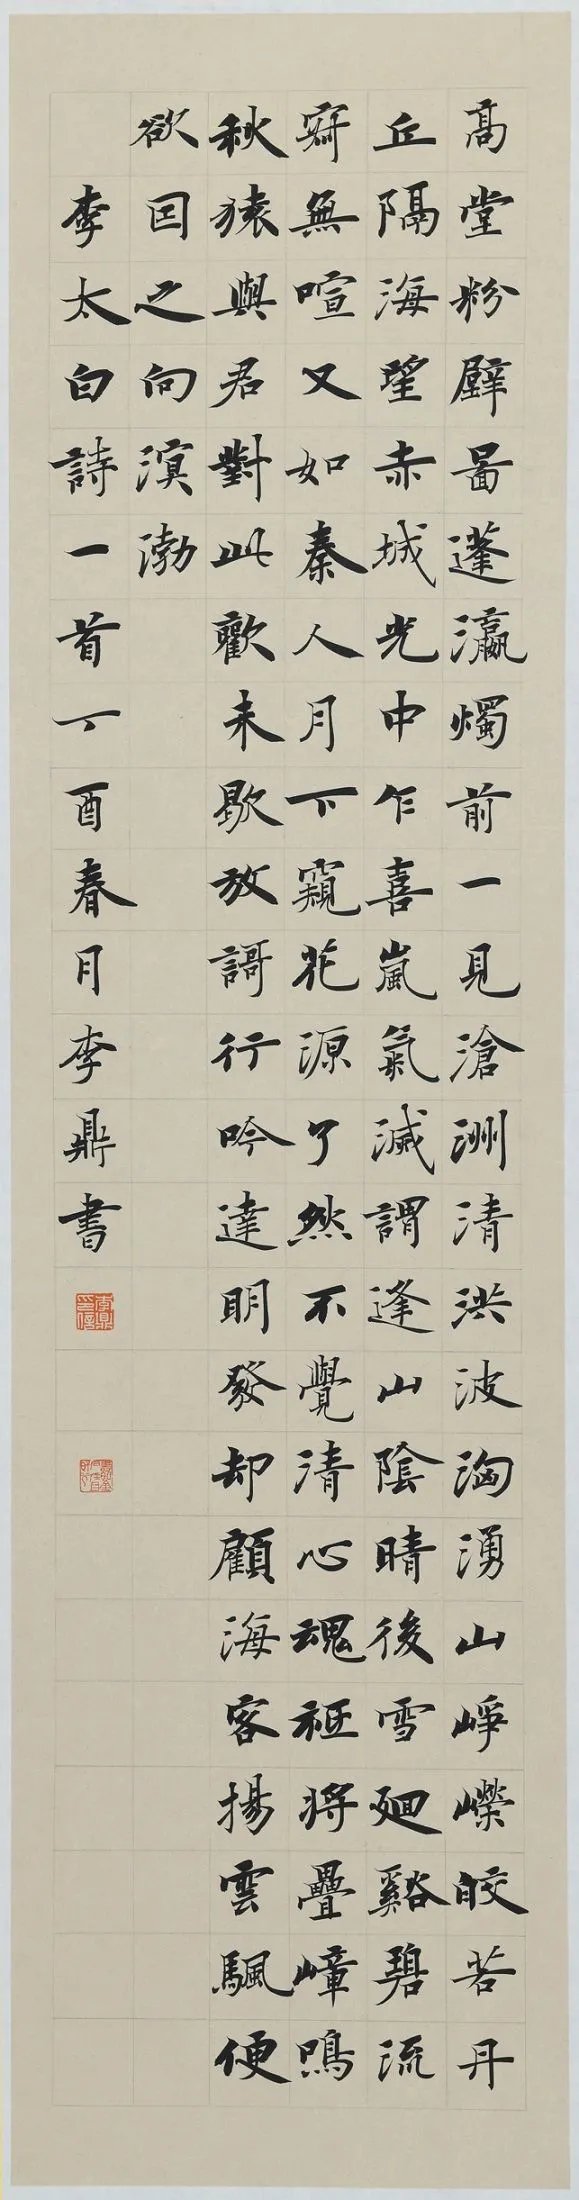 高堂粉壁啚蓬瀛燭前一見滄洲清洪波洶湧山崢嶸皎若丹
丘隔海望赤城光中乍喜嵐氣滅謂逢山陰晴後雪廻谿碧流
寂無喧又如秦人月下窺花源了然不覺清心魂祗將疊嶂鳴
秋猿與君對此歡未歇放謌行吟達明發却顧海客揚雲颿便
欲因之向溟渤
李太白詩一首丁酉春月李鼎書
李鼎